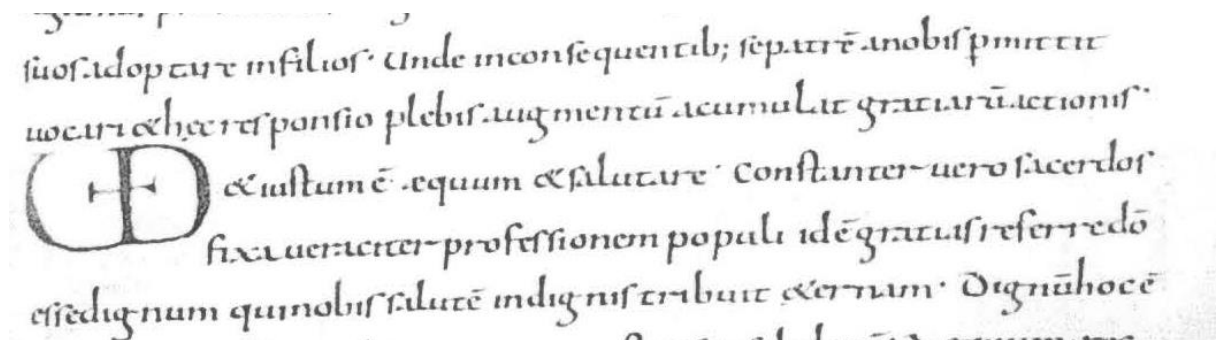 suos adoptare in filios· Unde in consequentib; se patrē a nobis pmittit
uocari & hęc responsio plebis augmentū acumulat gratiarū actionis·
& iustum ē· aequum & salutare· Constanter uero sacerdos
fixa ueraciter professionem populi idē gratias referre dō
esse dignum qui nobis salutē indignis tribuit &ernam· Dignū hoc ē